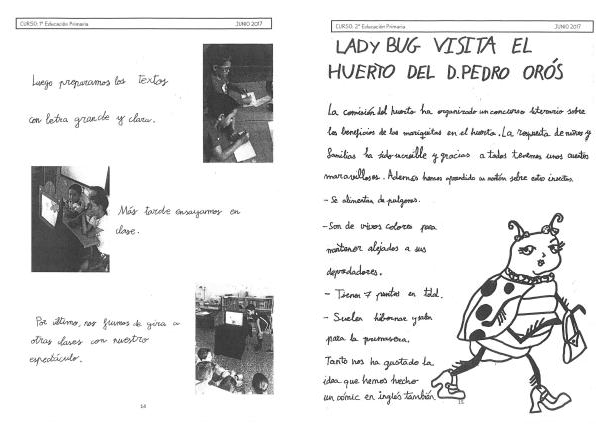 CURSO: 1º Educación Primaria JUNIO 2017
Luego preparamos los textos
con letra grande y clara.
Más tarde ensayamos en
clase.
Por último, nos fuimos de gira a
otras clases con nuestro
espectáculo.
14
CURSO: 2º Educación Primaria JUNIO 2017
LADY BUG VISITA EL
HUERTO DEL D. PEDRO ORÓS
La comisión del huerto ha organizado un concurso literario sobre
los beneficios de las mariquitas en el huerto. La respuesta de niños y
familias ha sido increíble y gracias a todos tenemos unos cuentos
maravillosos. Además hemos aprendido un montón sobre estos insectos.
- Se alimentan de pulgones.
- Son de vivos colores para
mantener alejados a sus
depredadores.
- Tienen 7 puntos en total.
- Suelen hibernar y salen
para la primavera.
Tanto nos ha gustado la
idea que hemos hecho
un comic en inglés también.
15